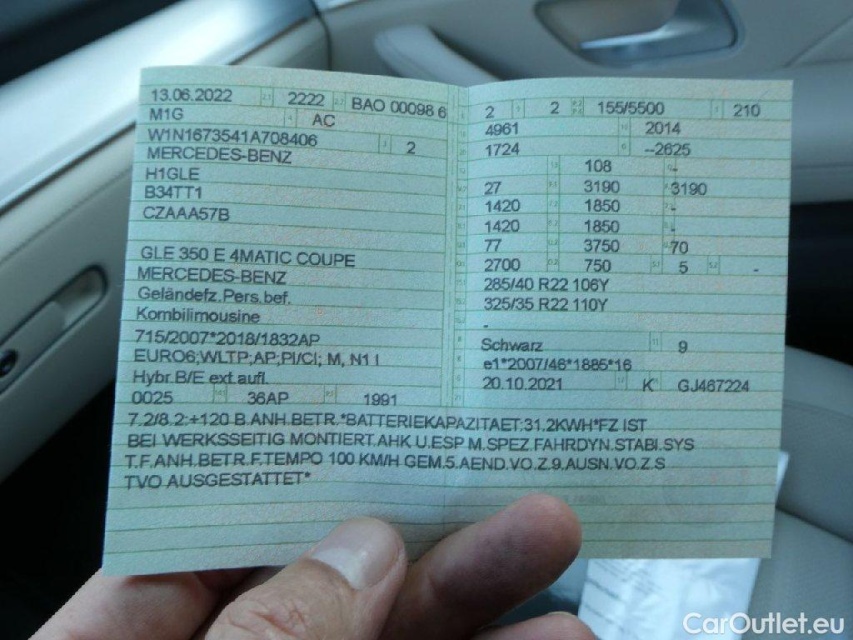 13.06.2022 2222 BAO 00098 6
M1G AC
W1N1673541A708406 2
MERCEDES-BENZ
H1GLE
B34TT1
CZAAA57B
GLE 350 E 4MATIC COUPE
MERCEDES-BENZ
Geländefz.Pers.bef.
Kombilimousine
715/2007*2018/1832AP
EURO6;WLTP;AP;PI/CI; M, N1 I
Hybr.B/E ext.aufl.
0025 36AP 1991
2 2 155/5500 210
4961 2014
1724 --2625
108
27 3190 3190
1420 1850 -
1420 1850 -
77 3750 70
2700 750 5 -
285/40 R22 106Y
325/35 R22 110Y
-
Schwarz 9
e1*2007/46*1885*16
20.10.2021 K GJ467224
7.2/8.2:+120 B.ANH.BETR.*BATTERIEKAPAZITAET:31.2KWH*FZ IST
BEI WERKSSEITIG MONTIERT.AHK U.ESP M.SPEZ.FAHRDYN.STABI.SYS
T.F.ANH.BETR.F.TEMPO 100 KM/H GEM.5.AEND.VO.Z.9.AUSN.VO.Z.S
TVO AUSGESTATTET*
CarOutlet.eu